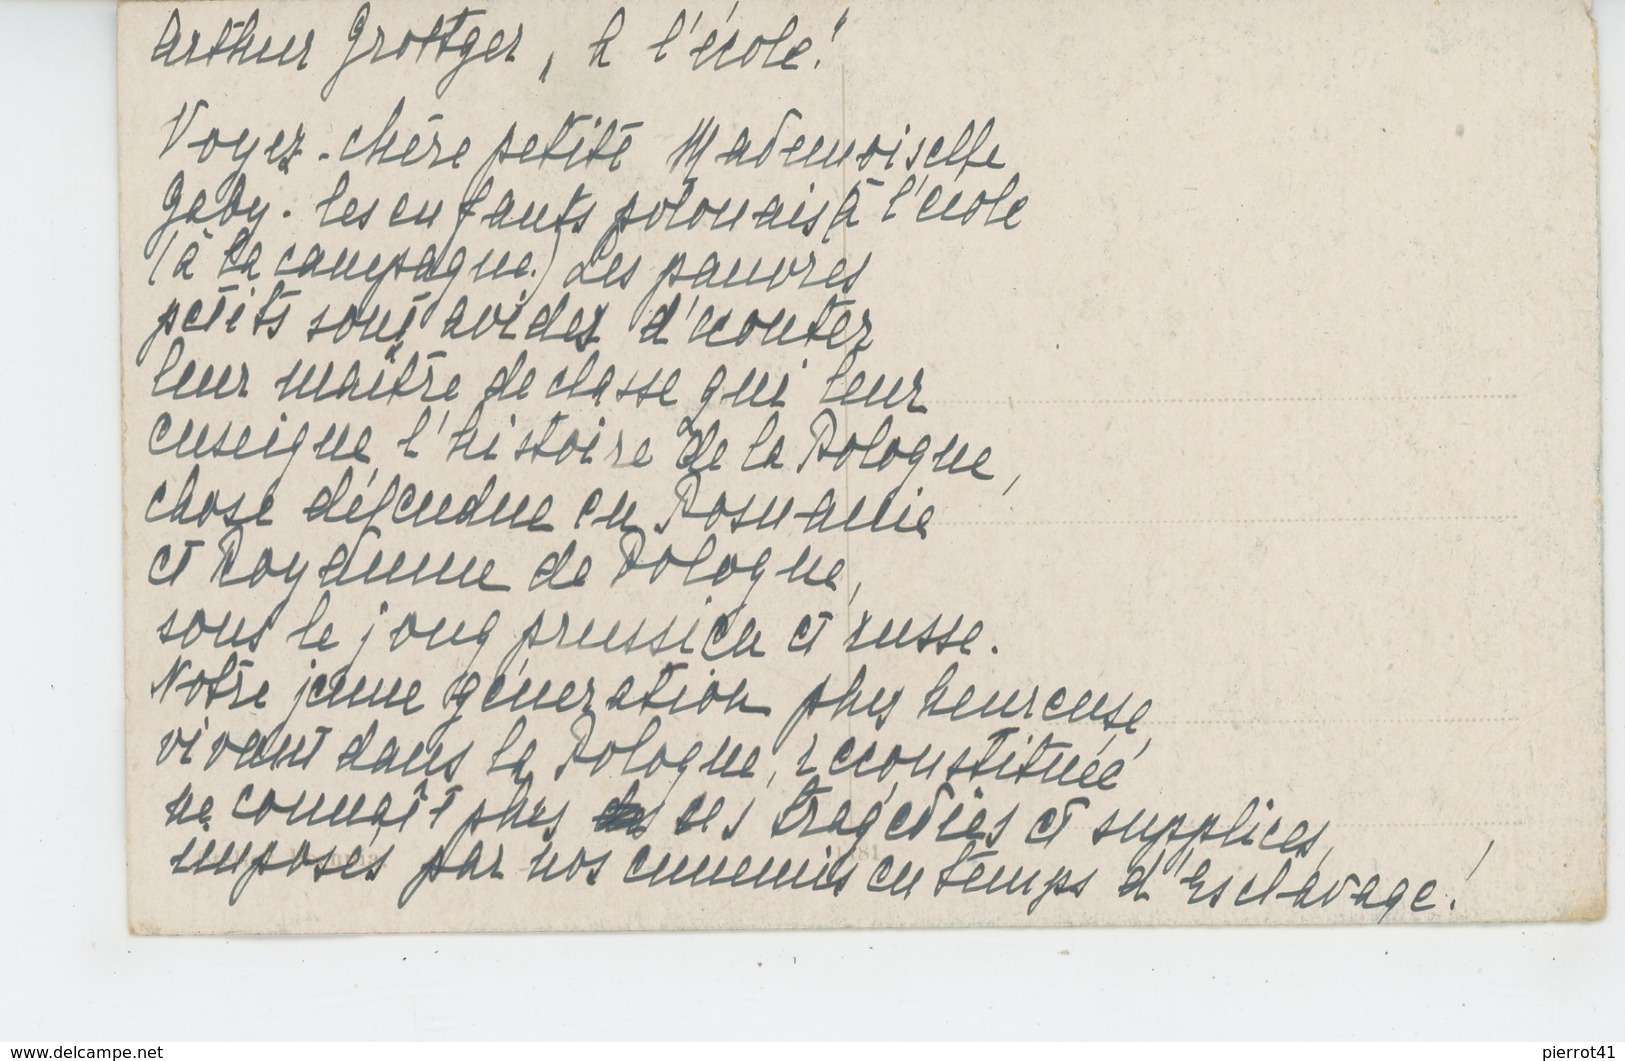 Arthur Grottger, "A l'école!"
Voyez-chère petite Mademoiselle
Gaby. les enfants polonais à l'école
(à la campagne.) Les pauvres
petits sont avides d'écouter
leur maître de classe qui leur
enseigne l'histoire de la Pologne,
chose défendue en Posnanie
et Royaume de Pologne,
sous le joug prussien et russe.
Notre jeune géneration plus heureuse,
vivant dans la Pologne, reconstituée
ne connaît plus ces tragédies et supplices,
imposés par nos ennemis en temps d'Esclavage!
www.delcampe.net
pierrot41